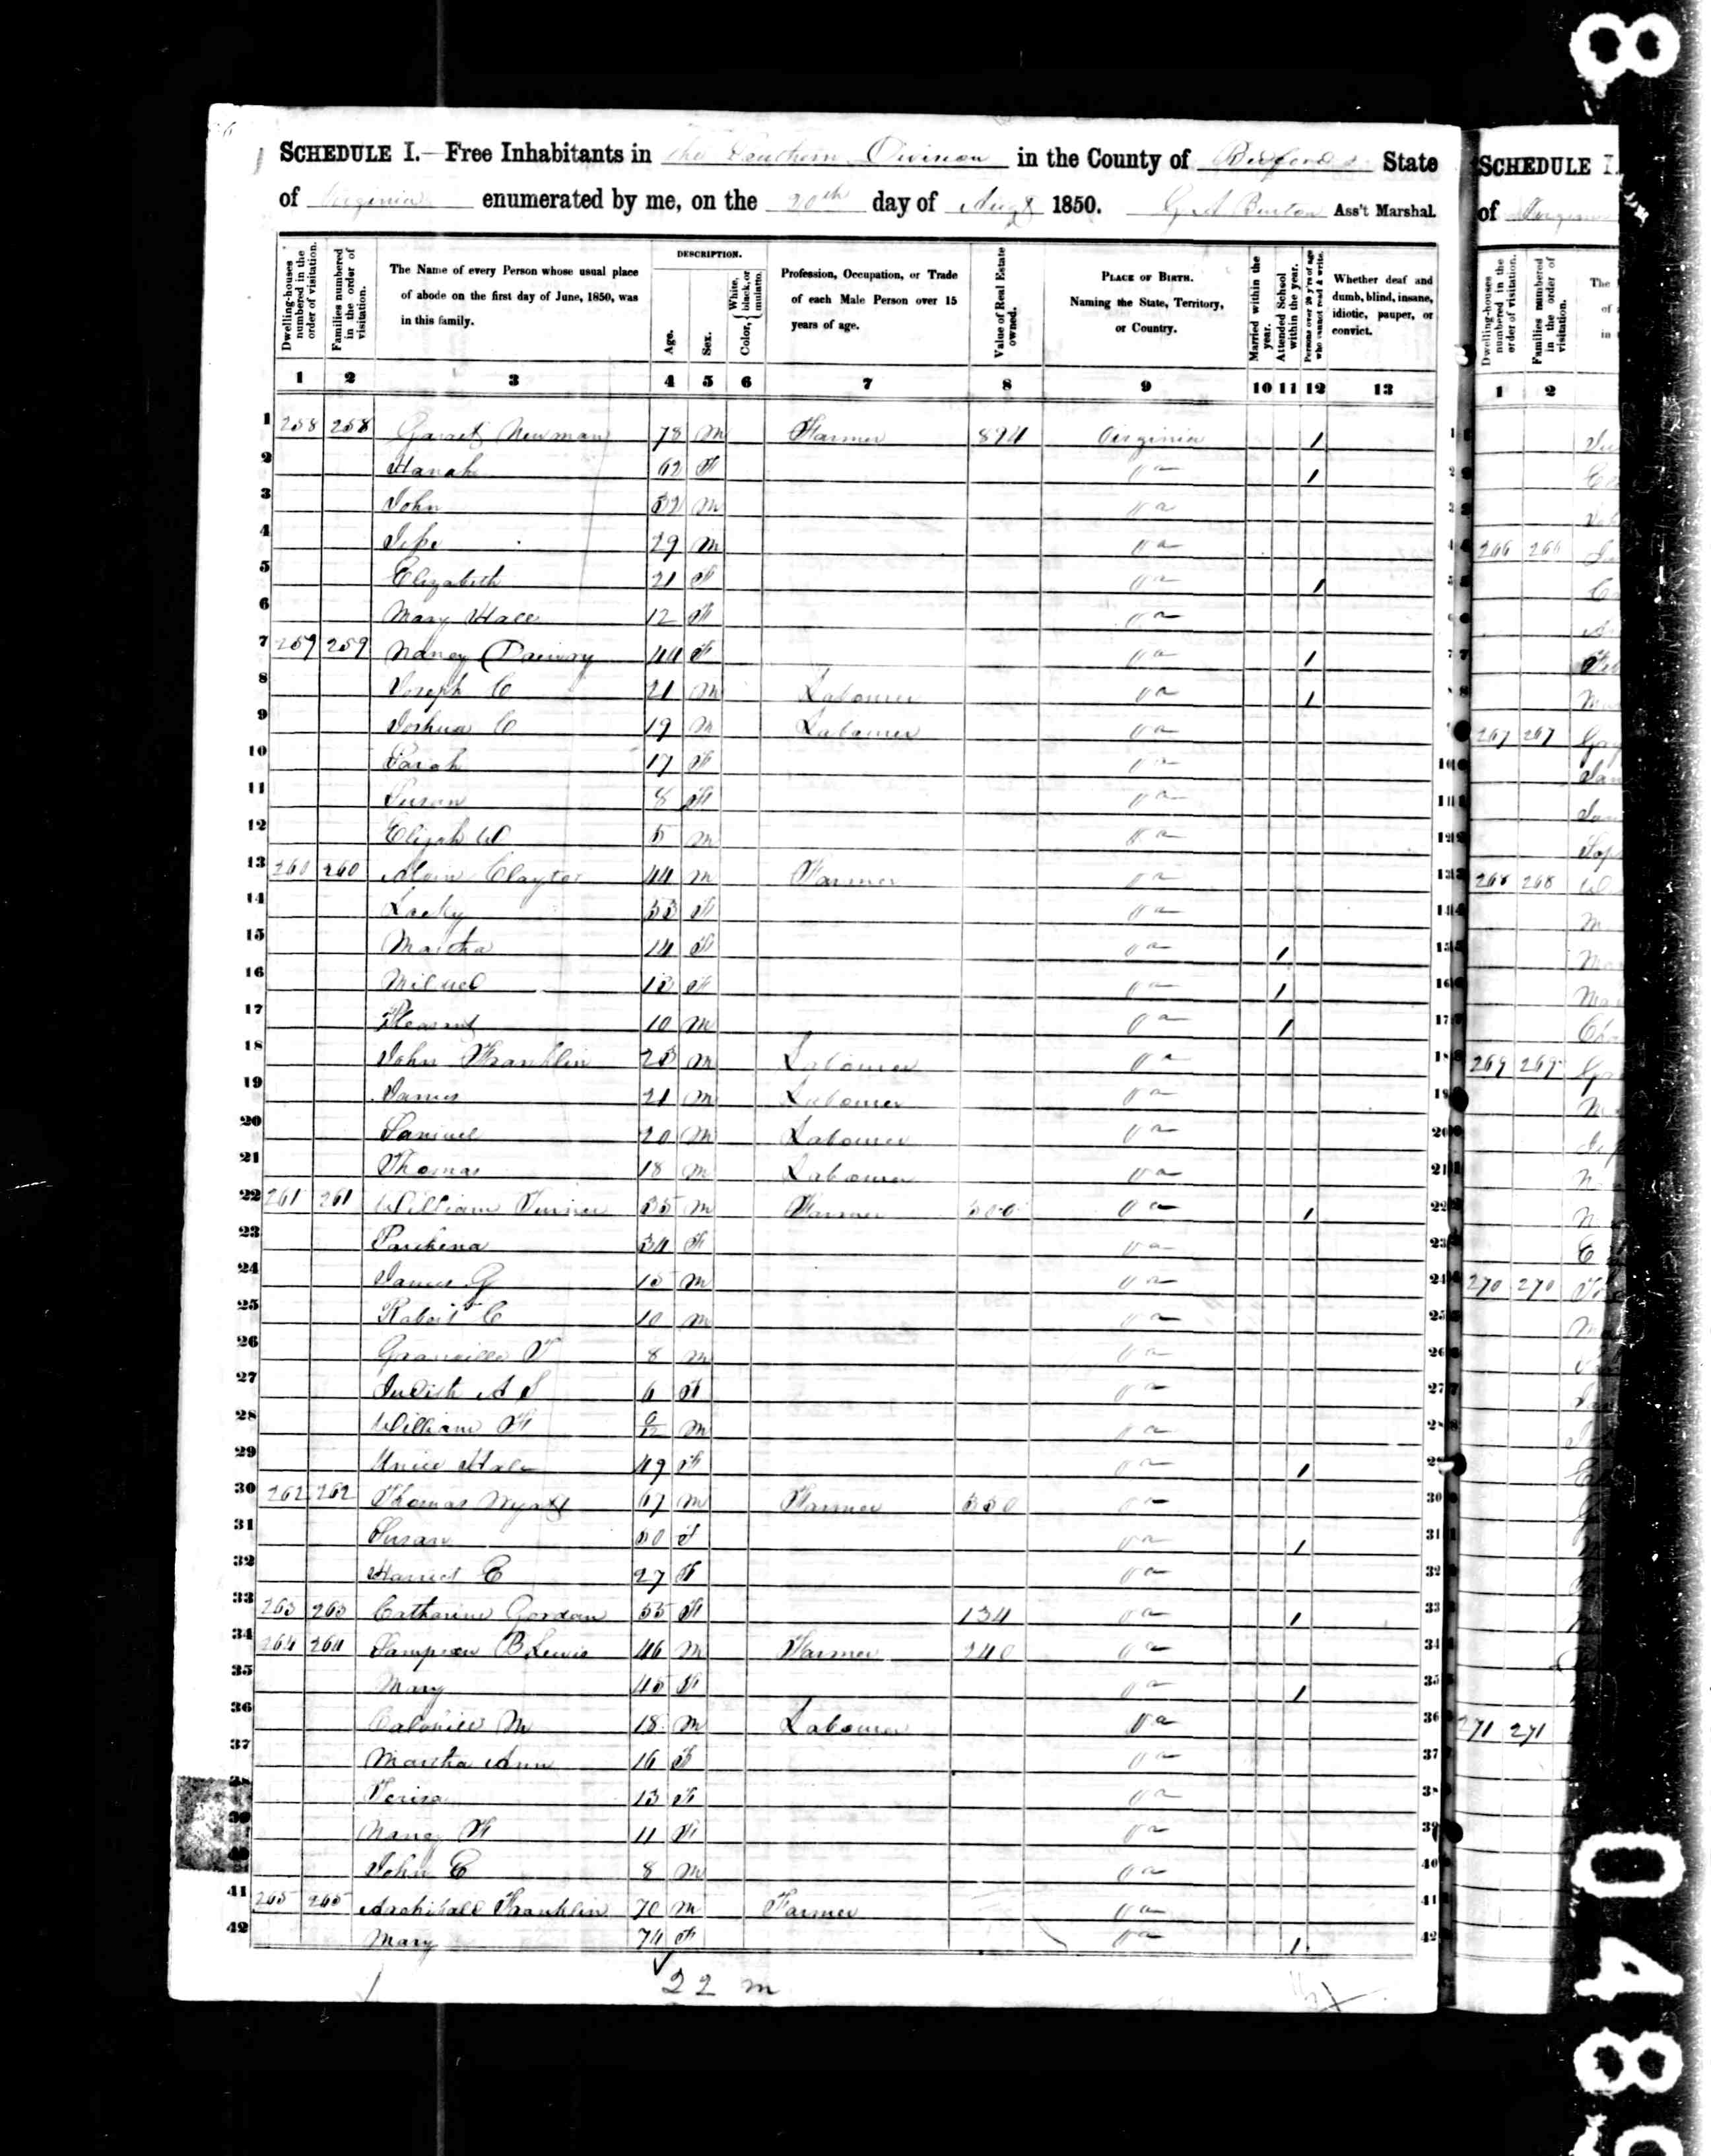 SCHEDULE I.—Free Inhabitants in the Southern Division in the County of Bedford State
of Virginia enumerated by me, on the 20th day of Augt 1850. G A Burton Ass't Marshal.
DESCRIPTION.
Dwelling-houses numbered in the order of visitation.
Families numbered in the order of visitation.
The Name of every Person whose usual place of abode on the first day of June, 1850, was in this family.
Age.
Sex.
Color, { White, black, or mulatto.
Profession, Occupation, or Trade of each Male Person over 15 years of age.
Value of Real Estate owned.
PLACE OF BIRTH. Naming the State, Territory, or Country.
Married within the year.
Attended School within the year.
Persons over 20 y'rs of age who cannot read & write.
Whether deaf and dumb, blind, insane, idiotic, pauper, or convict.
1 2 3 4 5 6 7 8 9 10 11 12 13
1 258 258 Newman 78 M Farmer 894 Virginia / 1
2 Hanah 62 F Va / 2
3 John 32 M Va 3
4 Jesse 29 M Va 4
5 Elizabeth 21 F Va / 5
6 Mary 12 F Va 6
7 259 259 Nancy 44 F Va / 7
8 Joseph C 21 M Labourer Va / 8
9 Joshua C 19 M Labourer Va
10 Sarah 17 F Va 10
11 Susan 8 F Va 11
12 Elijah W 5 M Va 12
13 260 260 Clayter 44 M Farmer Va 13
14 Lucky 53 F Va 14
15 Martha 14 F Va / 15
16 13 F Va / 16
17 Pleasant 10 M Va / 17
18 John Franklin 23 M Labourer Va 18
19 James 21 M Labourer Va 19
20 Samuel 20 M Labourer Va 20
21 Thomas 18 M Labourer Va 21
22 261 261 William Turner 35 M Farmer 300 Va / 22
23 Parthena 34 F Va 23
24 James G 15 M Va 24
25 Robert C 10 M Va 25
26 Granville T 8 M Va 26
27 Judith A S 6 F Va 27
28 William F M Va 28
29 49 F Va / 29
30 262 262 Thomas Wyatt 67 M Farmer 330 Va 30
31 Susan 50 F Va / 31
32 Harriet E 27 F Va 32
33 263 263 Catharine Gordan 55 F 134 Va / 33
34 264 264 Sampson B Lewis 46 M Farmer 240 Va 34
35 Mary 45 F Va / 35
36 M 18 M Labourer Va 36
37 Martha Ann 16 F Va 37
38 13 F Va 38
39 Nancy F 11 F Va 39
40 John E 8 M Va 40
41 265 265 Archibald Franklin 70 M Farmer Va 41
42 Mary 74 F Va / 42
22 m
SCHEDULE I.
of Virginia
Dwelling-houses numbered in the order of visitation.
Families numbered in the order of visitation.
1 2
266 266
267 267
268 268
269 269
270 270
271 271
8
0
4
8